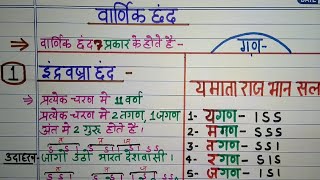 वार्णिक छंद
⇒ वार्णिक छंद 7 प्रकार के होते हैं -
1 इंद्रवज्रा छंद -
⇒ प्रत्येक चरण में 11 वर्ण
प्रत्येक चरण में 2 तगण, 1 जगण
अंत में 2 गुरु होते हैं।
उदाहरण - जागो उठो भारत देशवासी।
गण -
य माता राज भान सल
1- यगण - I S S
2- मगण - S S S
3- तगण - S S I
4- रगण - S I S
5- जगण - I S I